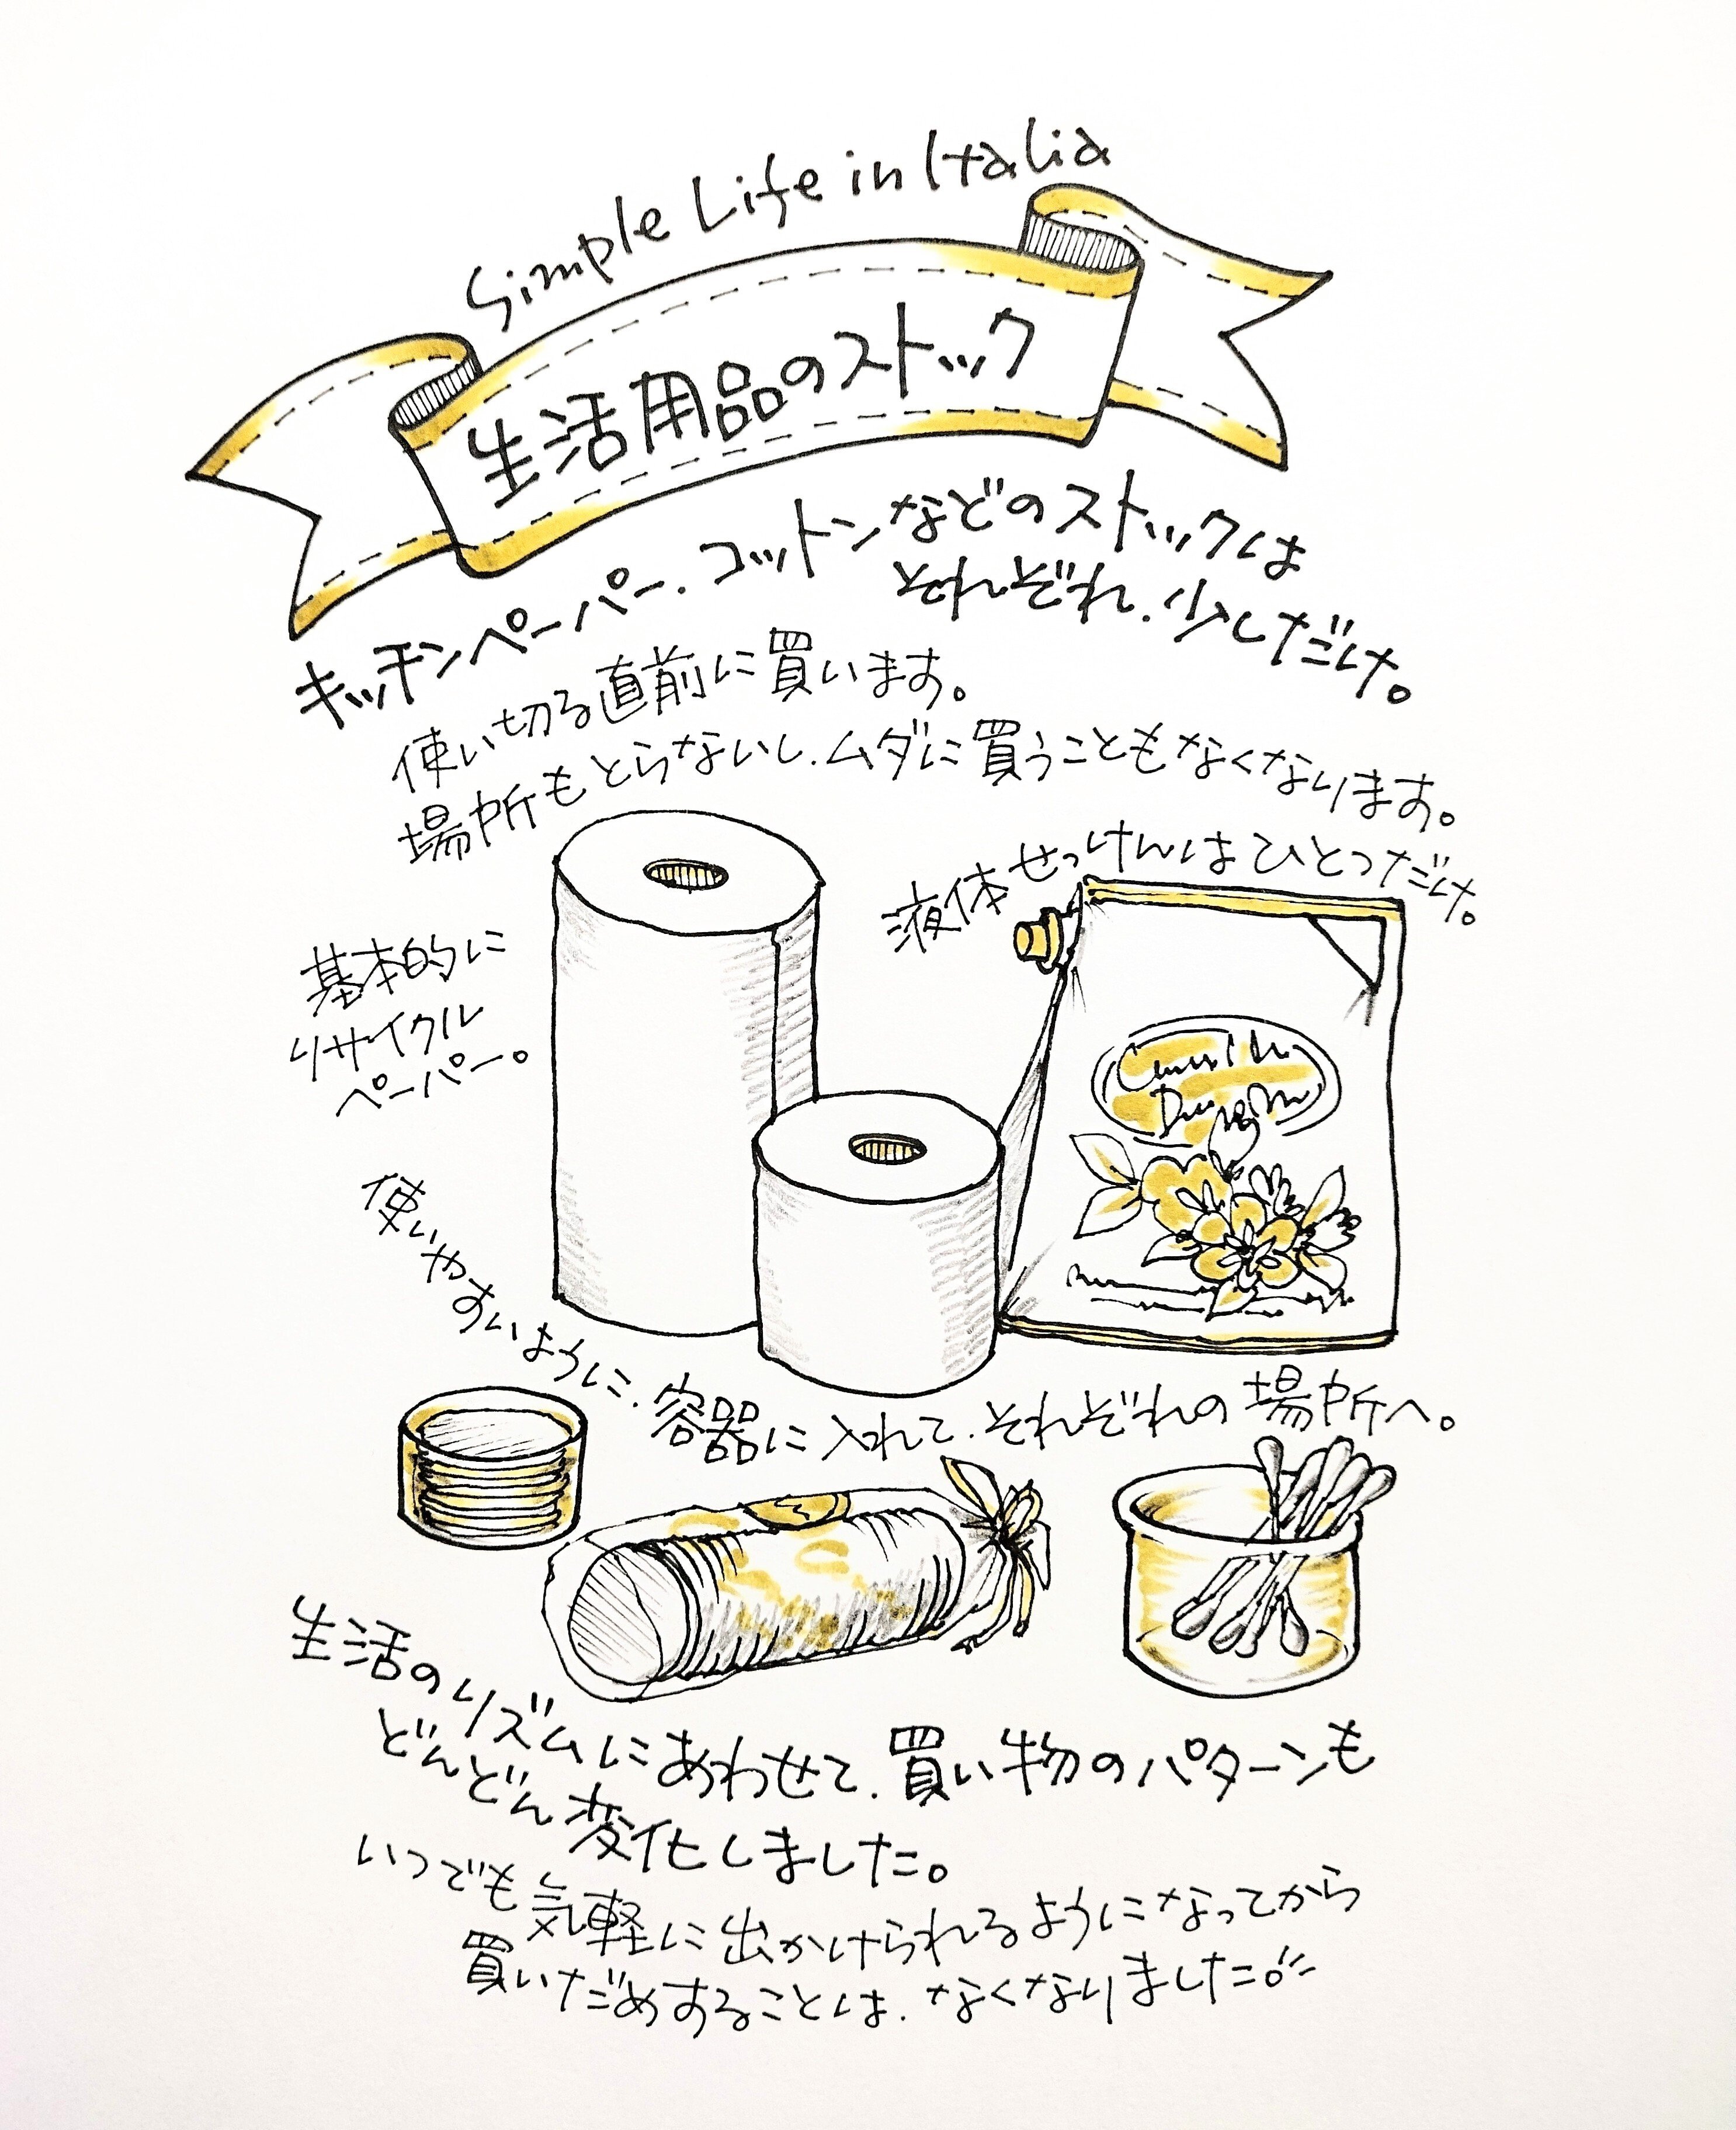 Simple Life in Italia
生活用品のストック
キッチンペーパー．コットンなどのストックは
それぞれ．少しだけ。
使い切る直前に買います。
場所もとらないし．ムダに買うこともなくなります。
液体せっけんはひとつだけ。
基本的に
リサイクル
ペーパー。
使いやすいように．容器に入れて．それぞれの場所へ。
生活のリズムにあわせて．買い物のパターンも
どんどん変化しました。
いつでも気軽に出かけられるようになってから
買いだめすることは．なくなりました。